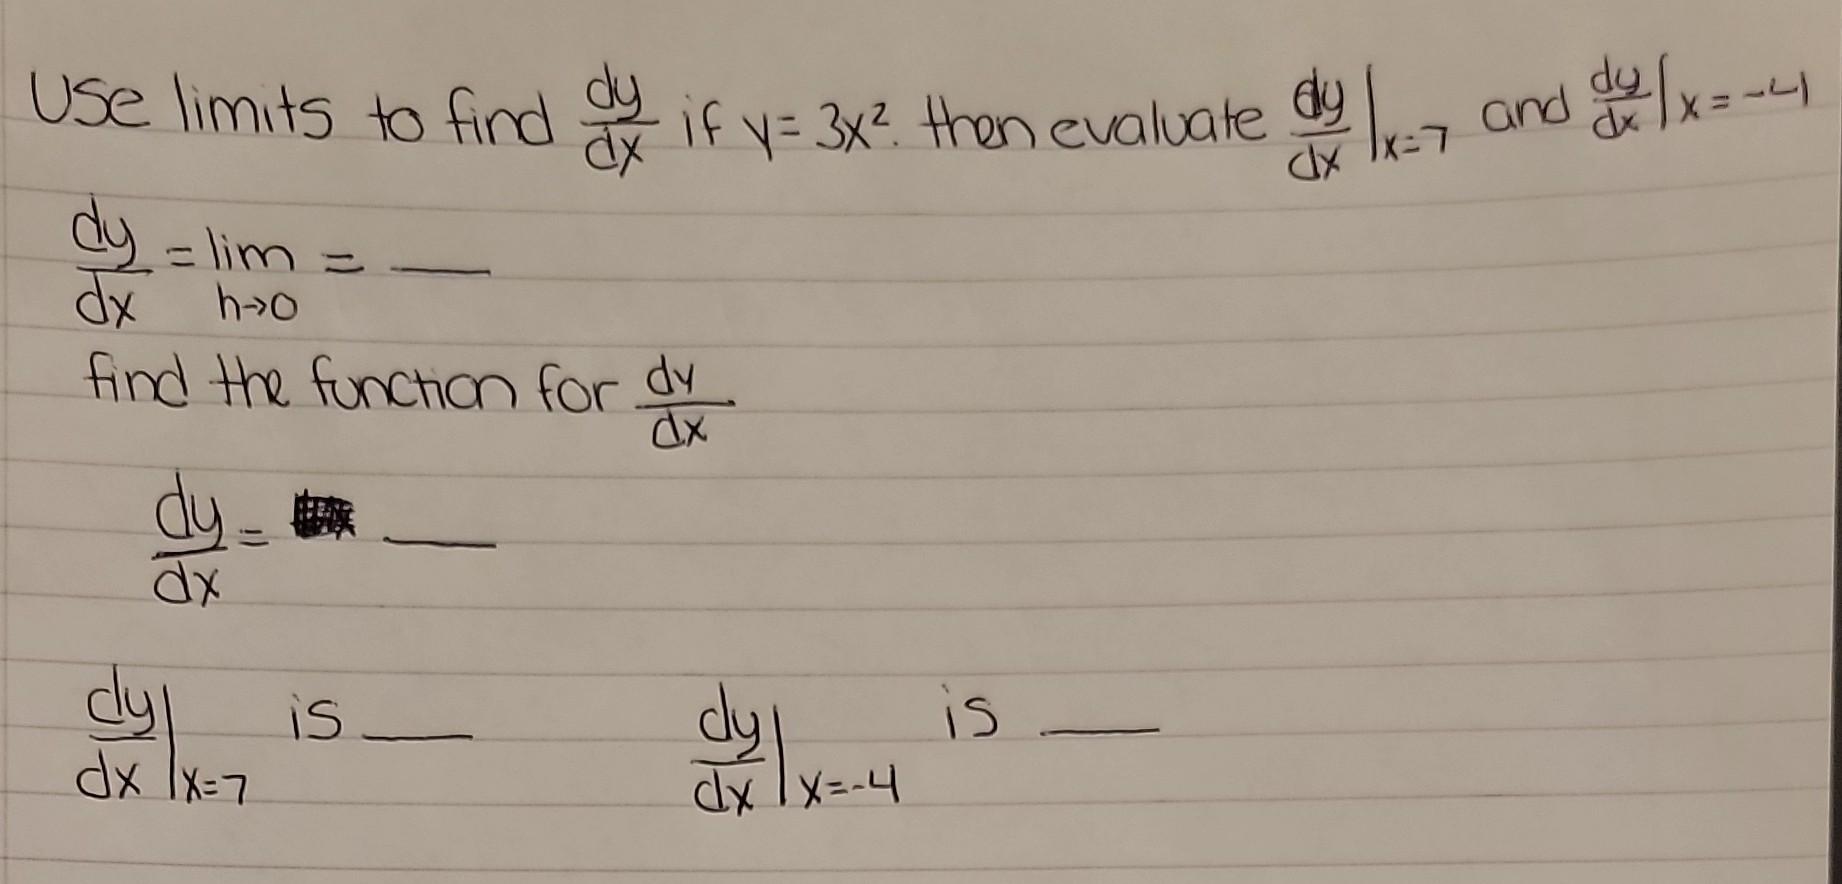 Use limits to find dy/dx if y = 3x². then evaluate dy/dx |x=7 and dy/dx |x=-4
dy/dx = lim h→0 = __
find the function for dy/dx
dy/dx = __
dy/dx |x=7 is __ dy/dx |x=-4 is __